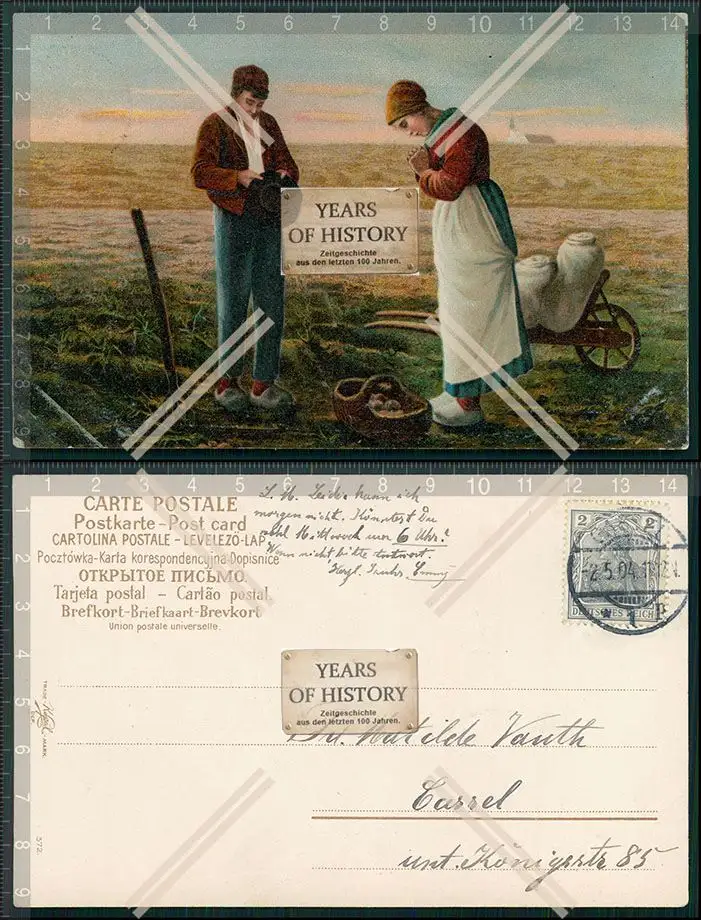 1 2 3 4 5 6 7 8 9 10 11 12 13 14
2
3
4
5
6
7
8
9
YEARS
OF HISTORY
Zeitgeschichte
aus den letzten 100 Jahren.
1 2 3 4 5 6 7 8 9 10 11 12 13 14
2
3
4
5
6
7
8
9
CARTE POSTALE
Postkarte-Post card
CARTOLINA POSTALE - LEVELEZŐ-LAP
Pocztówka-Karta korespondencyjna-Dopisnice
ОТКРЫТОЕ ПИСЬМО
Tarjeta postal - Cartão postal
Brefkort-Briefkaart-Brevkort
Union postale universelle.
L. M. Leider kann ich
morgen nicht. Könntest Du
wohl Mittwoch um 6 Uhr?
Wenn nicht bitte Antwort.
Herzl. Emmy
2 2
DEUTSCHES REICH
2.5.04
TRADE MARK
572
YEARS
OF HISTORY
Zeitgeschichte
aus den letzten 100 Jahren.
Matilde Vauth
Cassel
unt. Königsstr 85